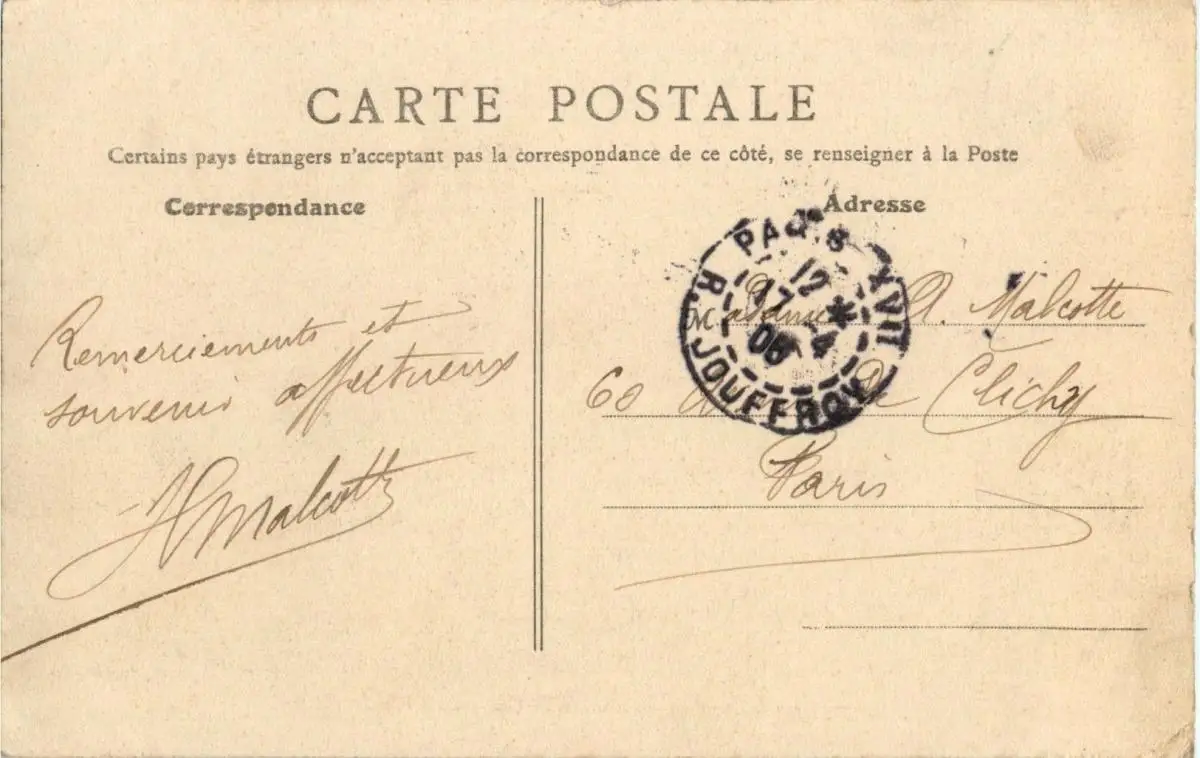 CARTE POSTALE
Certains pays étrangers n'acceptant pas la correspondance de ce côté, se renseigner à la Poste
Correspondance
Remerciements et
souvenir affectueux
H Malcotte
Adresse
PARIS XVII
R. JOUFFROY
12
17 4
06
Madame A. Malcotte
60 de Clichy
Paris